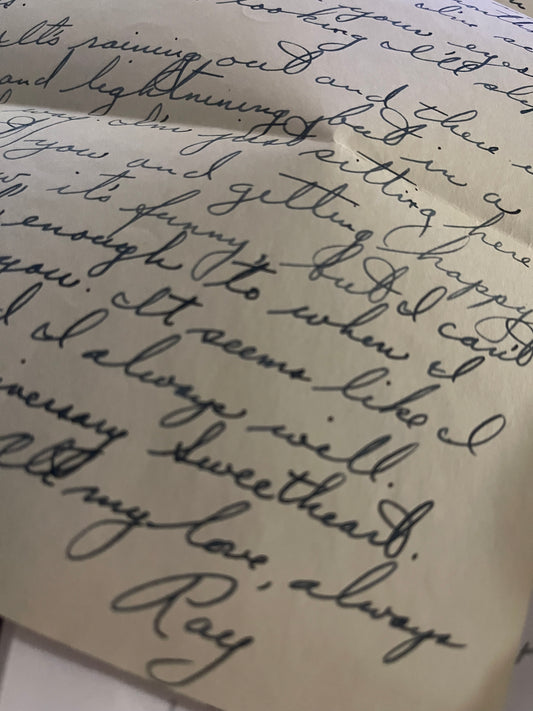 your eyes
looking I'll
It's raining out and there
and lightning, but in a
I'm just sitting here
of you and getting happy
it's funny, but I can't
enough to when I
you. It seems like I
I always will.
Sweetheart.
All my love, always
Ray